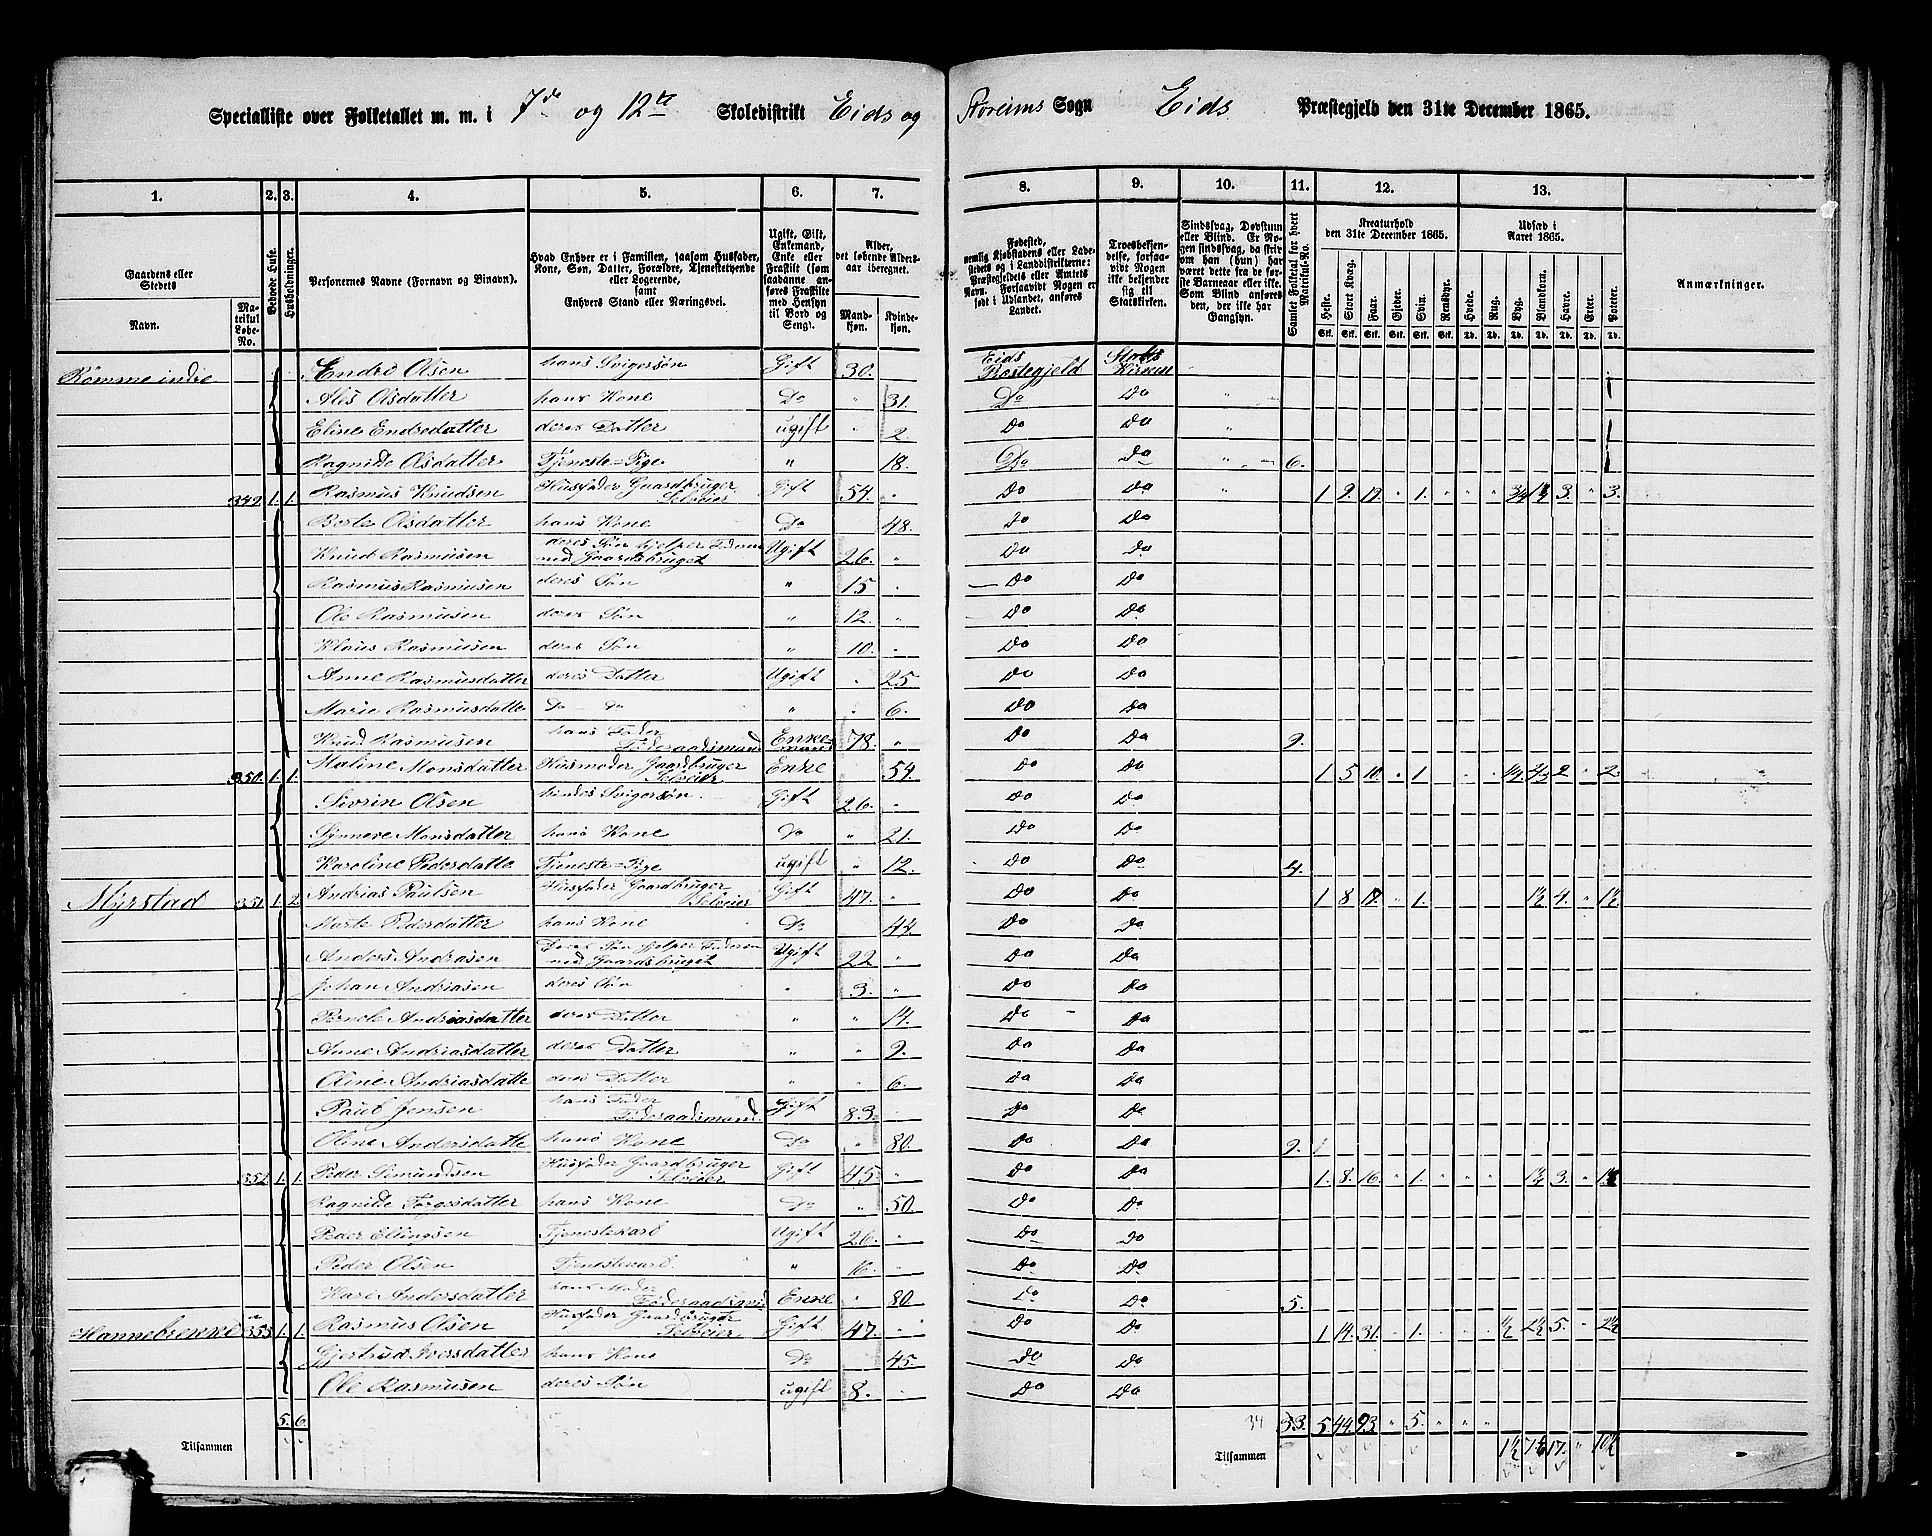 Specialliste over Folketallet m. m. i 7de og 12te Skoledistrikt Eids og Storeims Sogn Eids Præstegjeld den 31te December 1865.
1. 2. 3. 4. 5. 6. 7. 8. 9. 10. 11. 12. 13.
Gaardens eller Stedets Navn.
Matrikul Løbe-No.
Beboede Huse.
Husholdninger.
Personernes Navne (Fornavn og Binavn).
Hvad Enhver er i Familien, saasom Husfader, Kone, Søn, Datter, Forældre, Tjenestetyende eller Logerende, samt Enhvers Stand eller Næringsvei.
Ugift, Gift, Enkemand, Enke eller Fraskilt (som saadanne anføres Fraskilte med Hensyn til Bord og Seng).
Alder, det løbende Aldersaar iberegnet.
Mandkjøn. Kvindekjøn.
Fødested, nemlig Kjøbstadens eller Ladestedets og i Landdistrikterne: Præstegjeldets eller Amtets Navn. Forsaavidt Nogen er født i Udlandet, anføres Landet.
Troesbekjendelse, forsaavidt Nogen ikke bekjender sig til Statskirken.
Sindssvag, Døvstum eller Blind. Er Nogen sindssvag, da skriv om han (hun) har været dette fra de første Barneaar eller ikke. Som Blind anføres den, der ikke har Gangsyn.
Samlet Folketal for hvert Matrikul-No.
Kreaturhold den 31te December 1865.
Heste. Stort Kvæg. Faar. Gjeder. Svin. Rensdyr.
Udsæd i Aaret 1865.
Hvede. Rug. Byg. Blandkorn. Havre. Erter. Poteter.
Anmærkninger.
Rømme indre Endre Olsen hans Svigersøn Gift 30. Eids Præstegjeld Stats Kirken
Alis Olsdatter hans Kone Do " 31. Do Do "
Eline Endredatter deres Datter ugift " 2. Do Do "
Ragnilde Olsdatter Tjeneste-Pige " 18. Do Do " 6.
349. 1. 1. Rasmus Knudsen Husfader Gaardbruger Selveier Gift 54. " Do Do " 1 9. 12. " 1. " " " 3/4 1 1/2 3. " 3.
Berte Olsdatter hans Kone Do 48. Do Do
Knud Rasmusen deres Søn hjelper Faderen med Gaardsbruget Ugift 26. " Do Do
Rasmus Rasmusen deres Søn " 15 " Do Do
Ole Rasmusen deres Søn " 12. " Do Do
Klaus Rasmusen deres Søn " 10. " Do Do
Anne Rasmusdatter deres Datter Ugift " 25. Do Do
Marie Rasmusdatter Do - Do " " 6. Do Do
Knud Rasmusen hans Fader Føderaadsmand Enkemand 78. " Do Do 9.
350. 1. 1. Maline Monsdatter Husmoder Gaardbruger Selveier Enke 54. Do Do 1 5 10. " 1 " " " 1/2 2. " 2.
Sivrin Olsen hendes Svigersøn Gift 26. " Do Do
Synneve Monsdatter hans Kone Do " 21. Do Do
Karoline Pedersdatter Tjeneste-Pige ugift " 12. Do Do 4.
Myrstad 351. 1. 2. Andrias Paulsen Husfader Gaardbruger Selveier Gift 47. " Do Do 1 8 18. " 1. " 1 1/2 4. " 1 1/2
Marte Pedersdatter hans Kone Do 44. Do Do
Anders Andrasen Deres Søn hjelper Faderen med Gaardsbruget Ugift 22 " Do Do
Johan Andriasen deres Søn " 3. " Do Do
Pernele Andriasdatter deres Datter " " 14. Do Do
Anne Andriasdatter deres Datter " " 9. Do Do
Oline Andriasdatte deres Datter " " 6. Do Do
Paul Jensen hans Fader Føderaadsmand Gift 83. Do Do
Oline Andersdatte hans Kone Do " 80. Do Do 9.
352. 1. 1. Peder Simundsen Husfader Gaardbruger Selveier Gift 45. " Do Do 1. 8. 16. " 1. " " " 1 1/2 3. "
Ragnilde Torgersdatter hans Kone Do " 50. Do Do
Peder Ellingsen Tjenestekarl Ugift 26. " Do Do
Peder Olsen Tjenestekarl. " 16. " Do Do
Kari Andersdatter hans Moder Enke " 80. Do Do 5.
Hannebrekke 353 a 1. 1. Rasmus Olsen Husfader Gaardbruger Selveier Gift 47. " Do Do 1 14. 31. " 1. " " " 1/2 2 1/2 5. " 2 1/2
Gjertrud Iversdatter hans Kone Do 45. Do Do
Ole Rasmusen deres Søn ugift 8. Do Do
5. 6. 34 33. 5 44. 93 " 5. " " "
Tilsammen Tilsammen 1 1/2 17. " 10 1/2